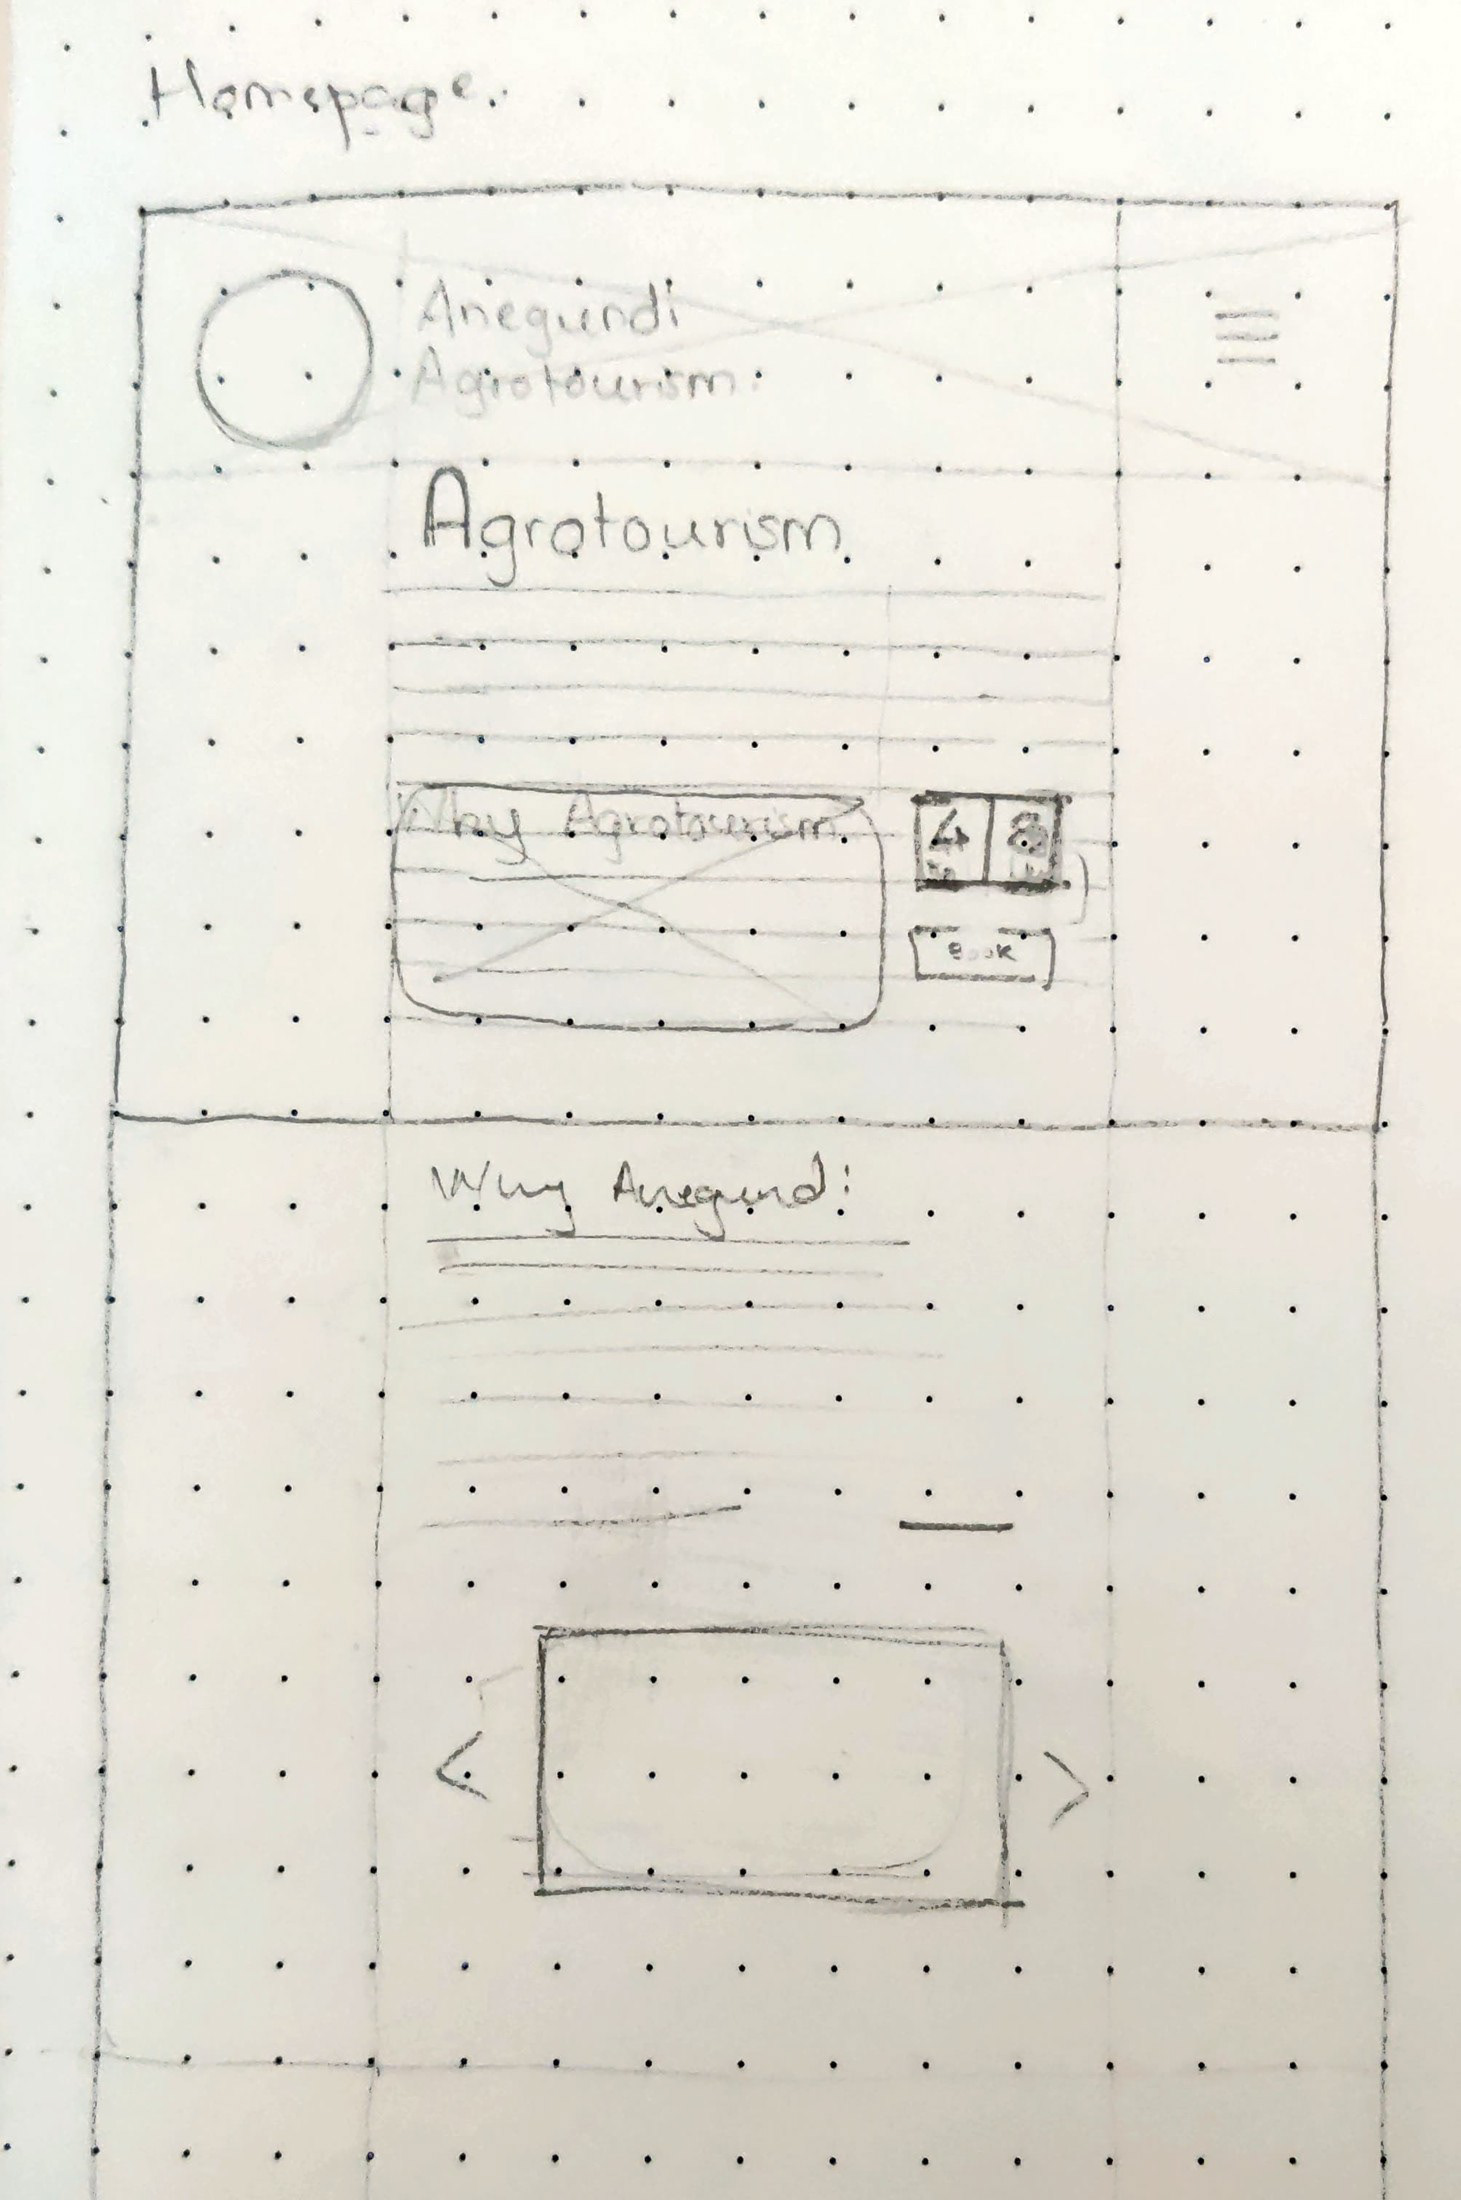 Homepage.
Anegundi
Agrotourism.
Agrotourism
Why Agrotourism
4 8
Book
Why Anegundi